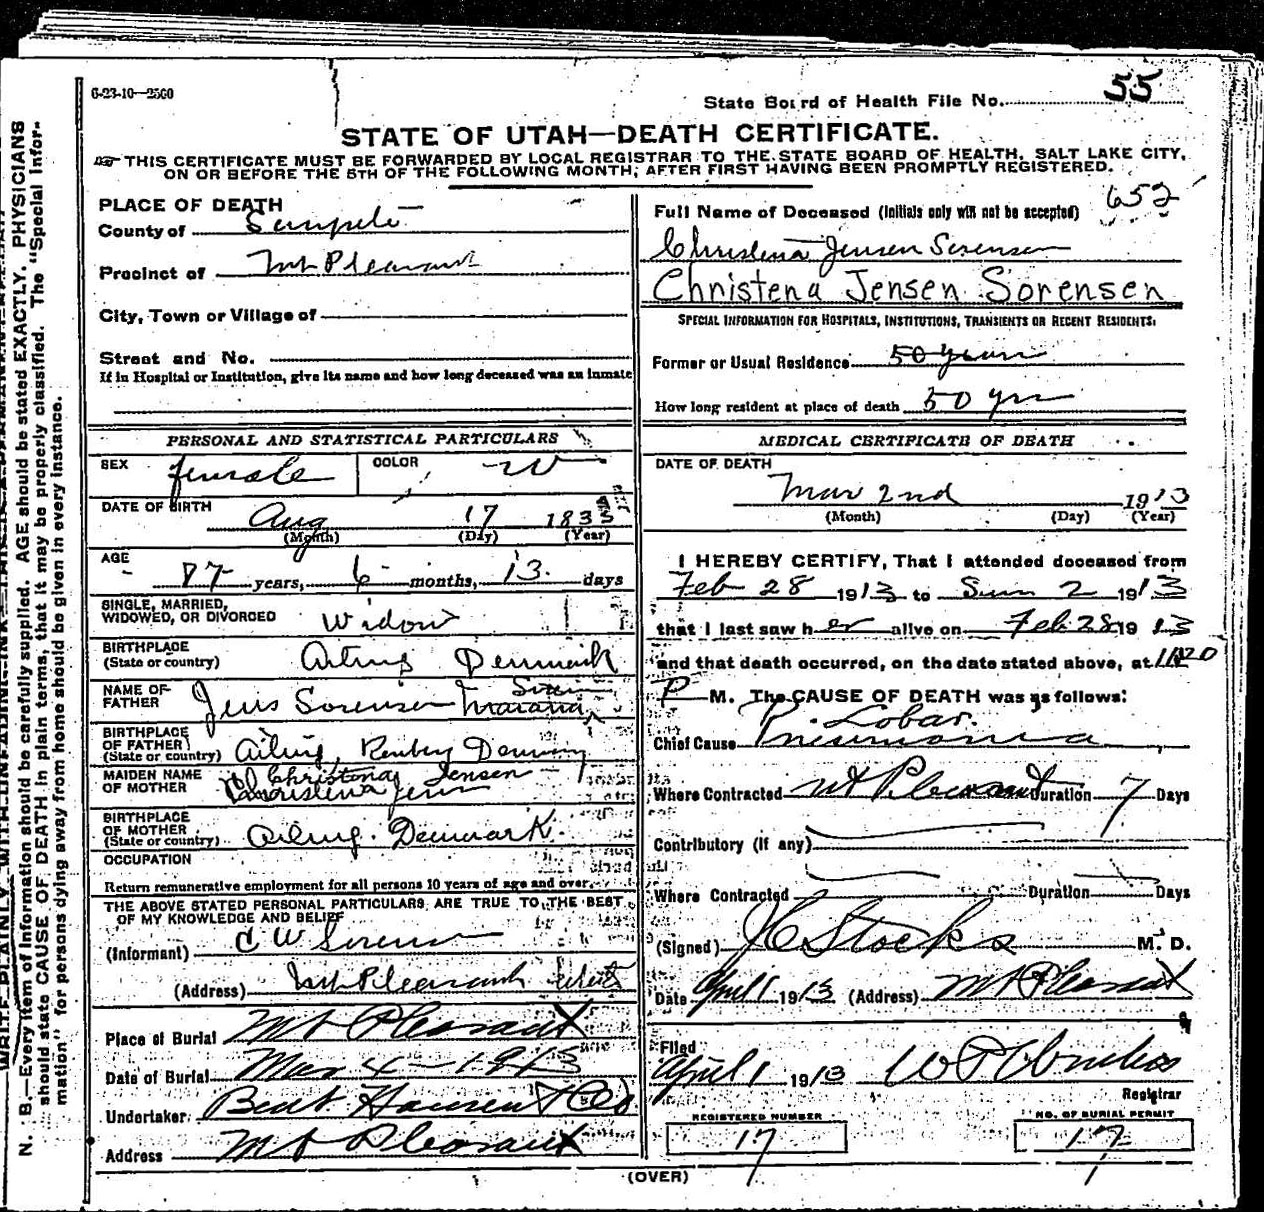 6-23-10—25C0
State Board of Health File No. 55
STATE OF UTAH—DEATH CERTIFICATE.
THIS CERTIFICATE MUST BE FORWARDED BY LOCAL REGISTRAR TO THE STATE BOARD OF HEALTH, SALT LAKE CITY,
ON OR BEFORE THE 5TH OF THE FOLLOWING MONTH, AFTER FIRST HAVING BEEN PROMPTLY REGISTERED.
PLACE OF DEATH
County of Sanpete
Precinct of Mt Pleasant
City, Town or Village of
Street and No.
If in Hospital or Institution, give its name and how long deceased was an inmate
652
Full Name of Deceased (Initials only will not be accepted)
Christena Jensen Sorensen
Christena Jensen Sorensen
SPECIAL INFORMATION FOR HOSPITALS, INSTITUTIONS, TRANSIENTS OR RECENT RESIDENTS.
Former or Usual Residence 50 years
How long resident at place of death 50 yrs
PERSONAL AND STATISTICAL PARTICULARS
SEX female COLOR W
DATE OF BIRTH Aug 17 1835
(Month) (Day) (Year)
AGE
77 years, 6 months, 13 days
SINGLE, MARRIED,
WIDOWED, OR DIVORCED Widow
BIRTHPLACE
(State or country) Denmark
NAME OF
FATHER Jens Sorensen
BIRTHPLACE
OF FATHER
(State or country)
MAIDEN NAME
OF MOTHER Christina Jensen
BIRTHPLACE
OF MOTHER
(State or country) Denmark.
OCCUPATION
Return remunerative employment for all persons 10 years of age and over.
THE ABOVE STATED PERSONAL PARTICULARS ARE TRUE TO THE BEST
OF MY KNOWLEDGE AND BELIEF
(Informant) C W Sorensen
(Address) Mt Pleasant Utah
Place of Burial Mt Pleasant
Date of Burial Mar 4 - 1913
Undertaker Bent Hansen & Co
Address Mt Pleasant
MEDICAL CERTIFICATE OF DEATH
DATE OF DEATH
Mar 2nd 1913
(Month) (Day) (Year)
I HEREBY CERTIFY, That I attended deceased from
Feb 28 1913 to 2 1913
that I last saw her alive on Feb 28 1913
and that death occurred, on the date stated above, at
P M. The CAUSE OF DEATH was as follows:
Lobar.
Chief Cause Pneumonia
Where Contracted Mt Pleasant Duration 7 Days
Contributory (if any)
Where Contracted Duration Days
(Signed) Stocks M. D.
Date April 1 1913 (Address) Mt Pleasant
Filed
April 1 1913
Registrar
REGISTERED NUMBER
17
NO. OF BURIAL PERMIT
17
(OVER)
N. B.—Every item of information should be carefully supplied. AGE should be stated EXACTLY. PHYSICIANS
should state CAUSE OF DEATH in plain terms, that it may be properly classified. The "Special Infor-
mation" for persons dying away from home should be given in every instance.